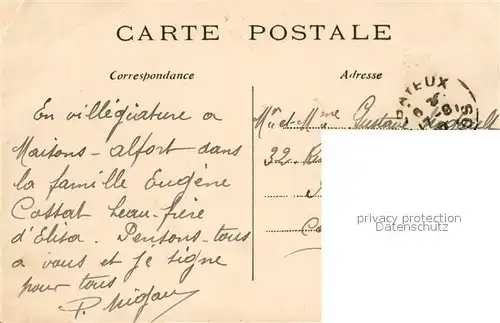 CARTE POSTALE
Correspondance
Adresse
En villégiature a
Maisons-alfort dans
la famille Eugène
Cottat beau-frère
d'Elisa. Pensons-tous
a vous et je signe
pour tous
P.
Mr et Mme Gustave
22
privacy protection
Datenschutz